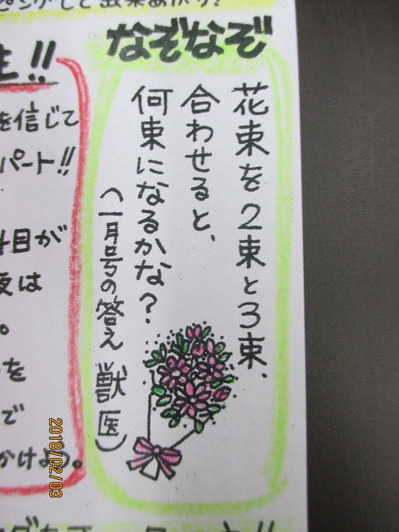 なぞなぞ
花束を2束と3束、
合わせると、
何束になるかな?
(一月号の答え 獣医)
!!
を信じて
パート!!
目が
は
。
を
で
かけよう。
2019/02/03